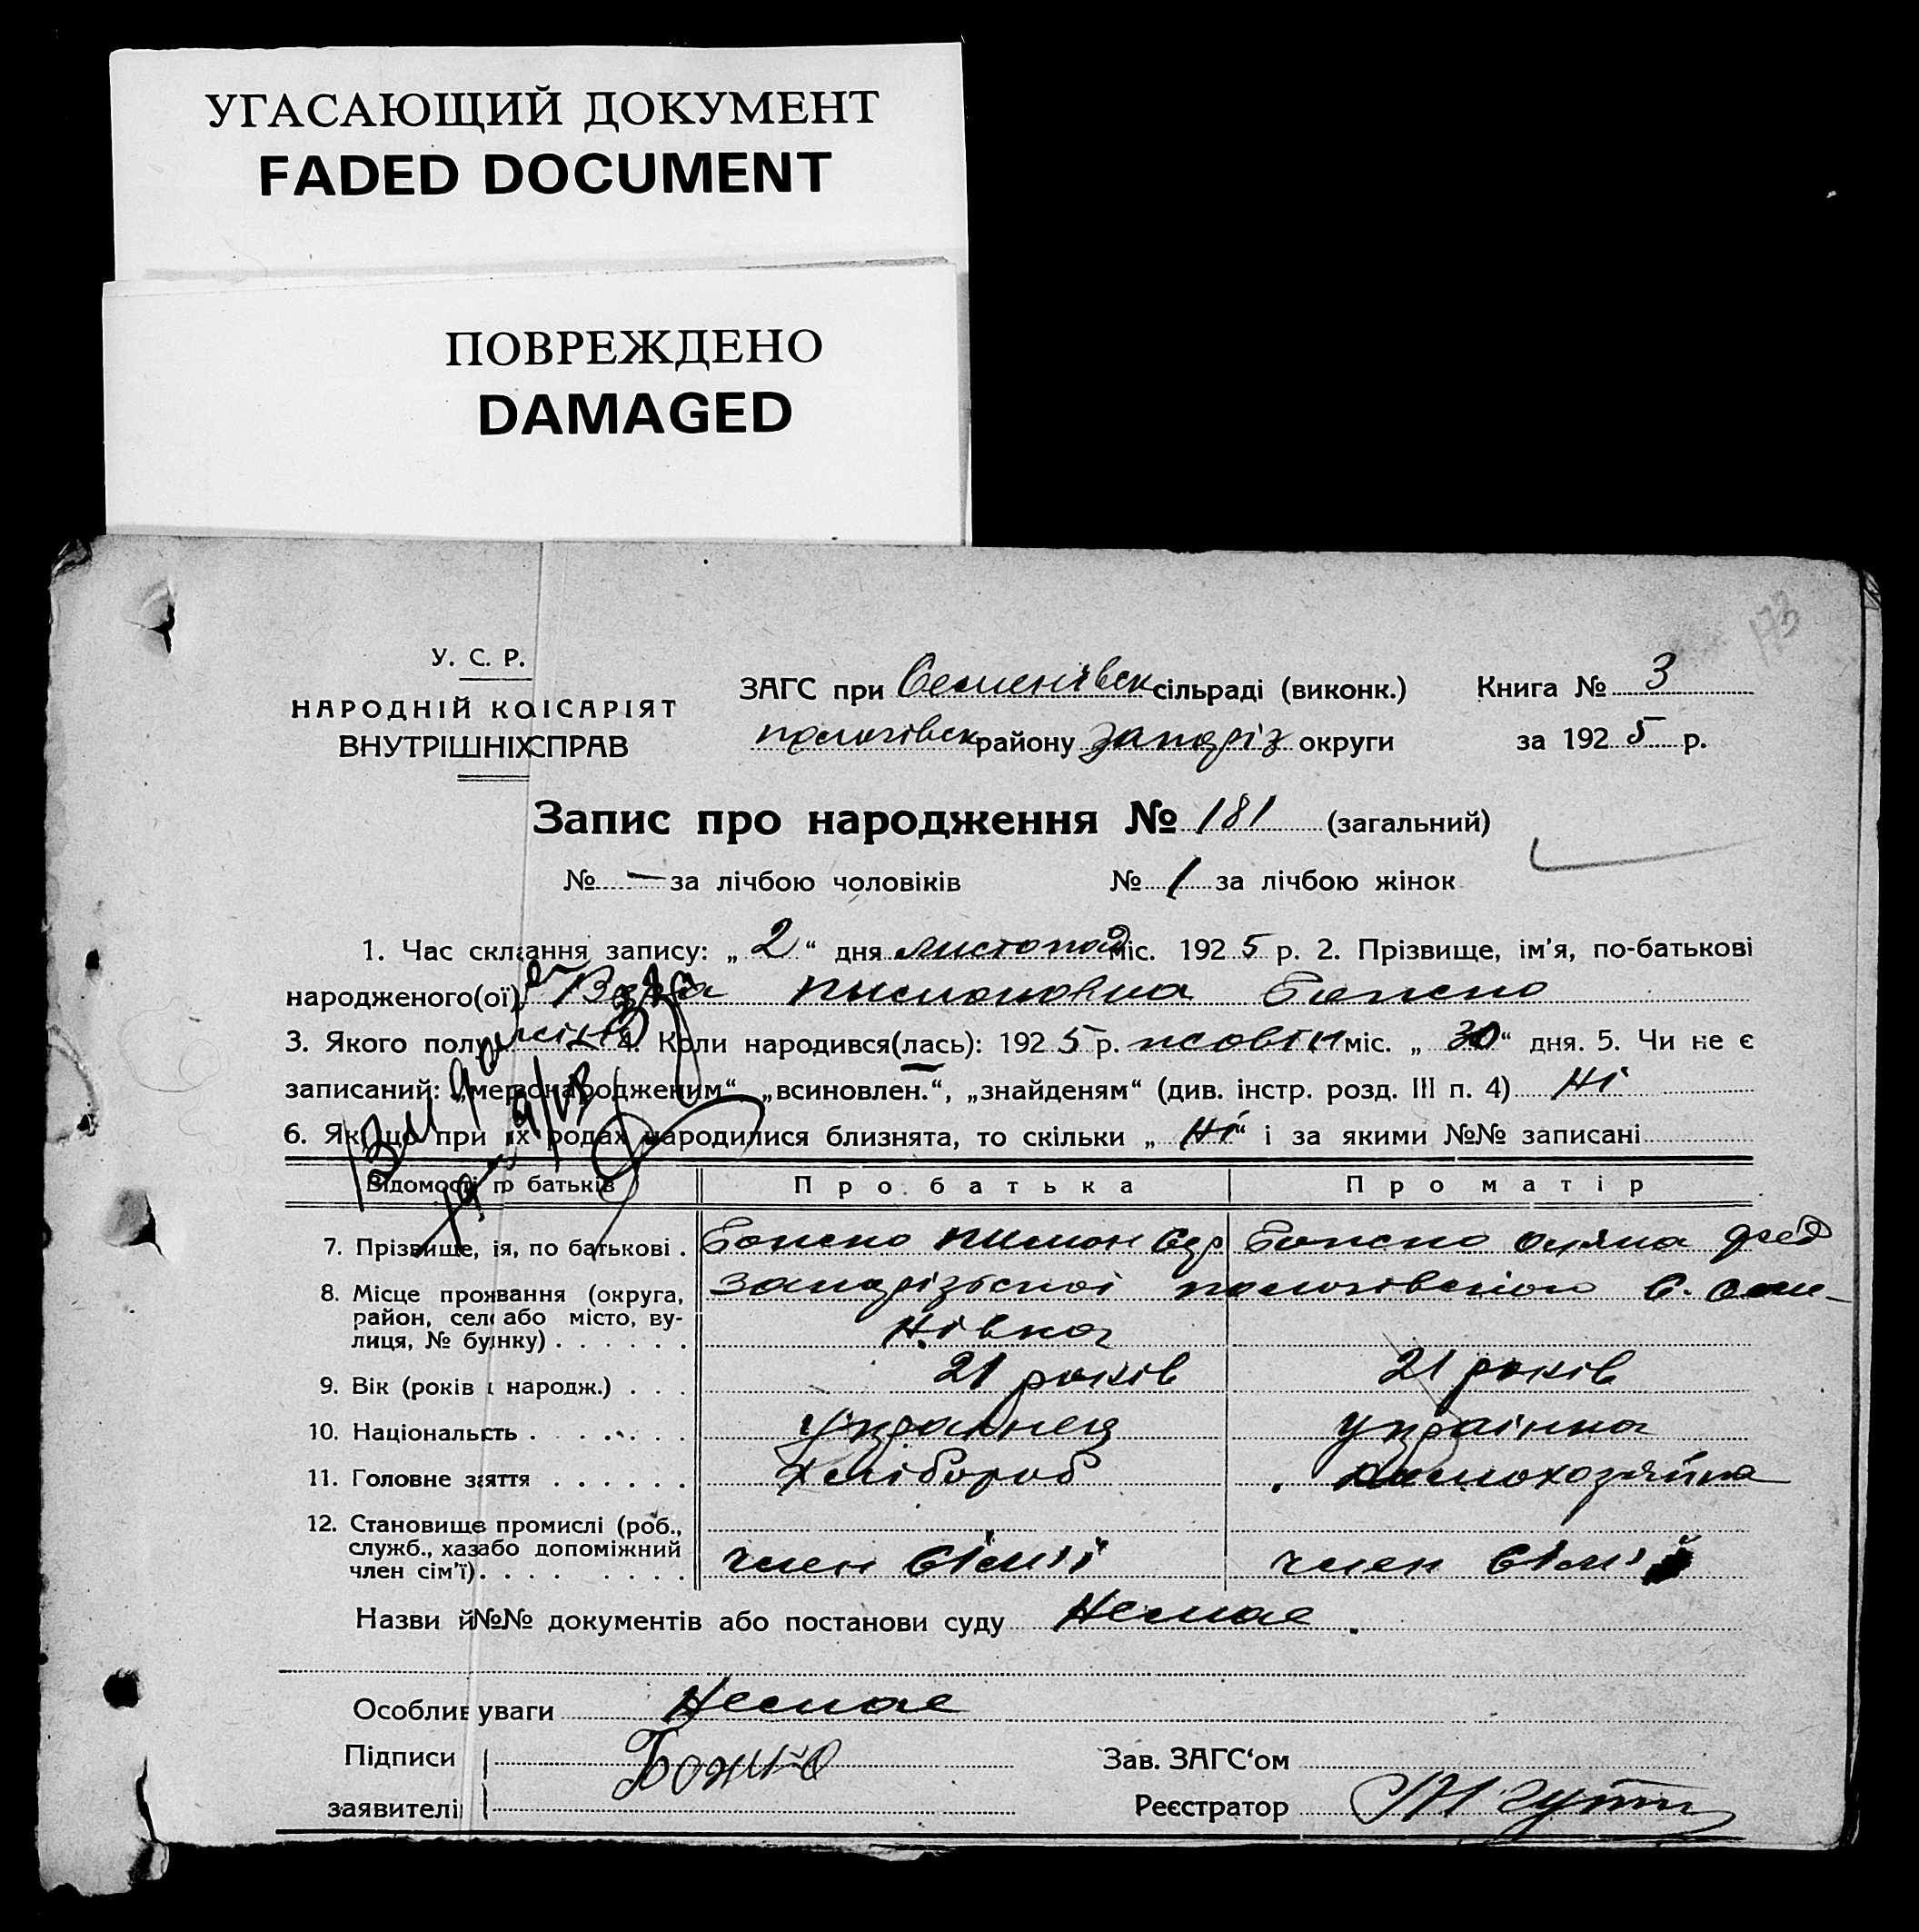 УГАСАЮЩИЙ ДОКУМЕНТ
FADED DOCUMENT
ПОВРЕЖДЕНО
DAMAGED
173
У. С. Р.
НАРОДНІЙ КОІСАРІЯТ
ВНУТРІШНІХСПРАВ
ЗАГС при Семенівск сільраді (виконк.) Книга № 3
пологівск району запоріз округи за 1925 р.
Запис про народження № 181 (загальний)
№ — за лічбою чоловіків № 1 за лічбою жінок
1. Час склання запису: „2“ дня листопад міс. 1925 р. 2. Прізвище, ім’я, по-батькові
народженого(ої) Божко
3. Якого полу жін 4. Коли народився(лась): 1925 р. жовтн міс. „30“ дня. 5. Чи не є
записаний: „мертвонародженим“, „всиновлен.“, „знайденям“ (див. інстр. розд. III п. 4) Ні
6. Якщо при їх родах народилися близнята, то скільки „Ні“ і за якими №№ записані
Відомості по батьків Про батька Про матір
7. Прізвище, ія, по батькові . Божко Пимон Божко
8. Місце прожвання (округа, запорізської пологівского с. Семе-
район, село або місто, ву-
лиця, № буінку) . . . . . . нівка
9. Вік (років народж.) . . . 21 років 21 років
10. Національсть . . . . . . українец українка
11. Головне заяття . . . . . . хлібороб домохозяйка
12. Становище промислі (роб.,
служб., хазабо допоміжний
член сім’ї) . . . . . . . . член сім'ї член сім'ї
Назви й№№ документів або постанови суду Немае
Особливуваги Немае
Підписи Божко Зав. ЗАГС‘ом
заявителі Реєстратор